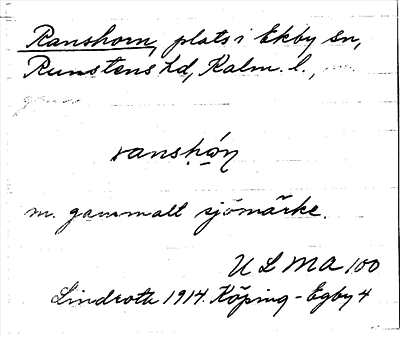 Ranshorn, plats i Ekby sn,
Runstens hd, Kalm. l.,
ranshǫ́ṇ
m. gammalt sjömärke.
ULMA 100
Lindroth 1914. Köping - Egby 4